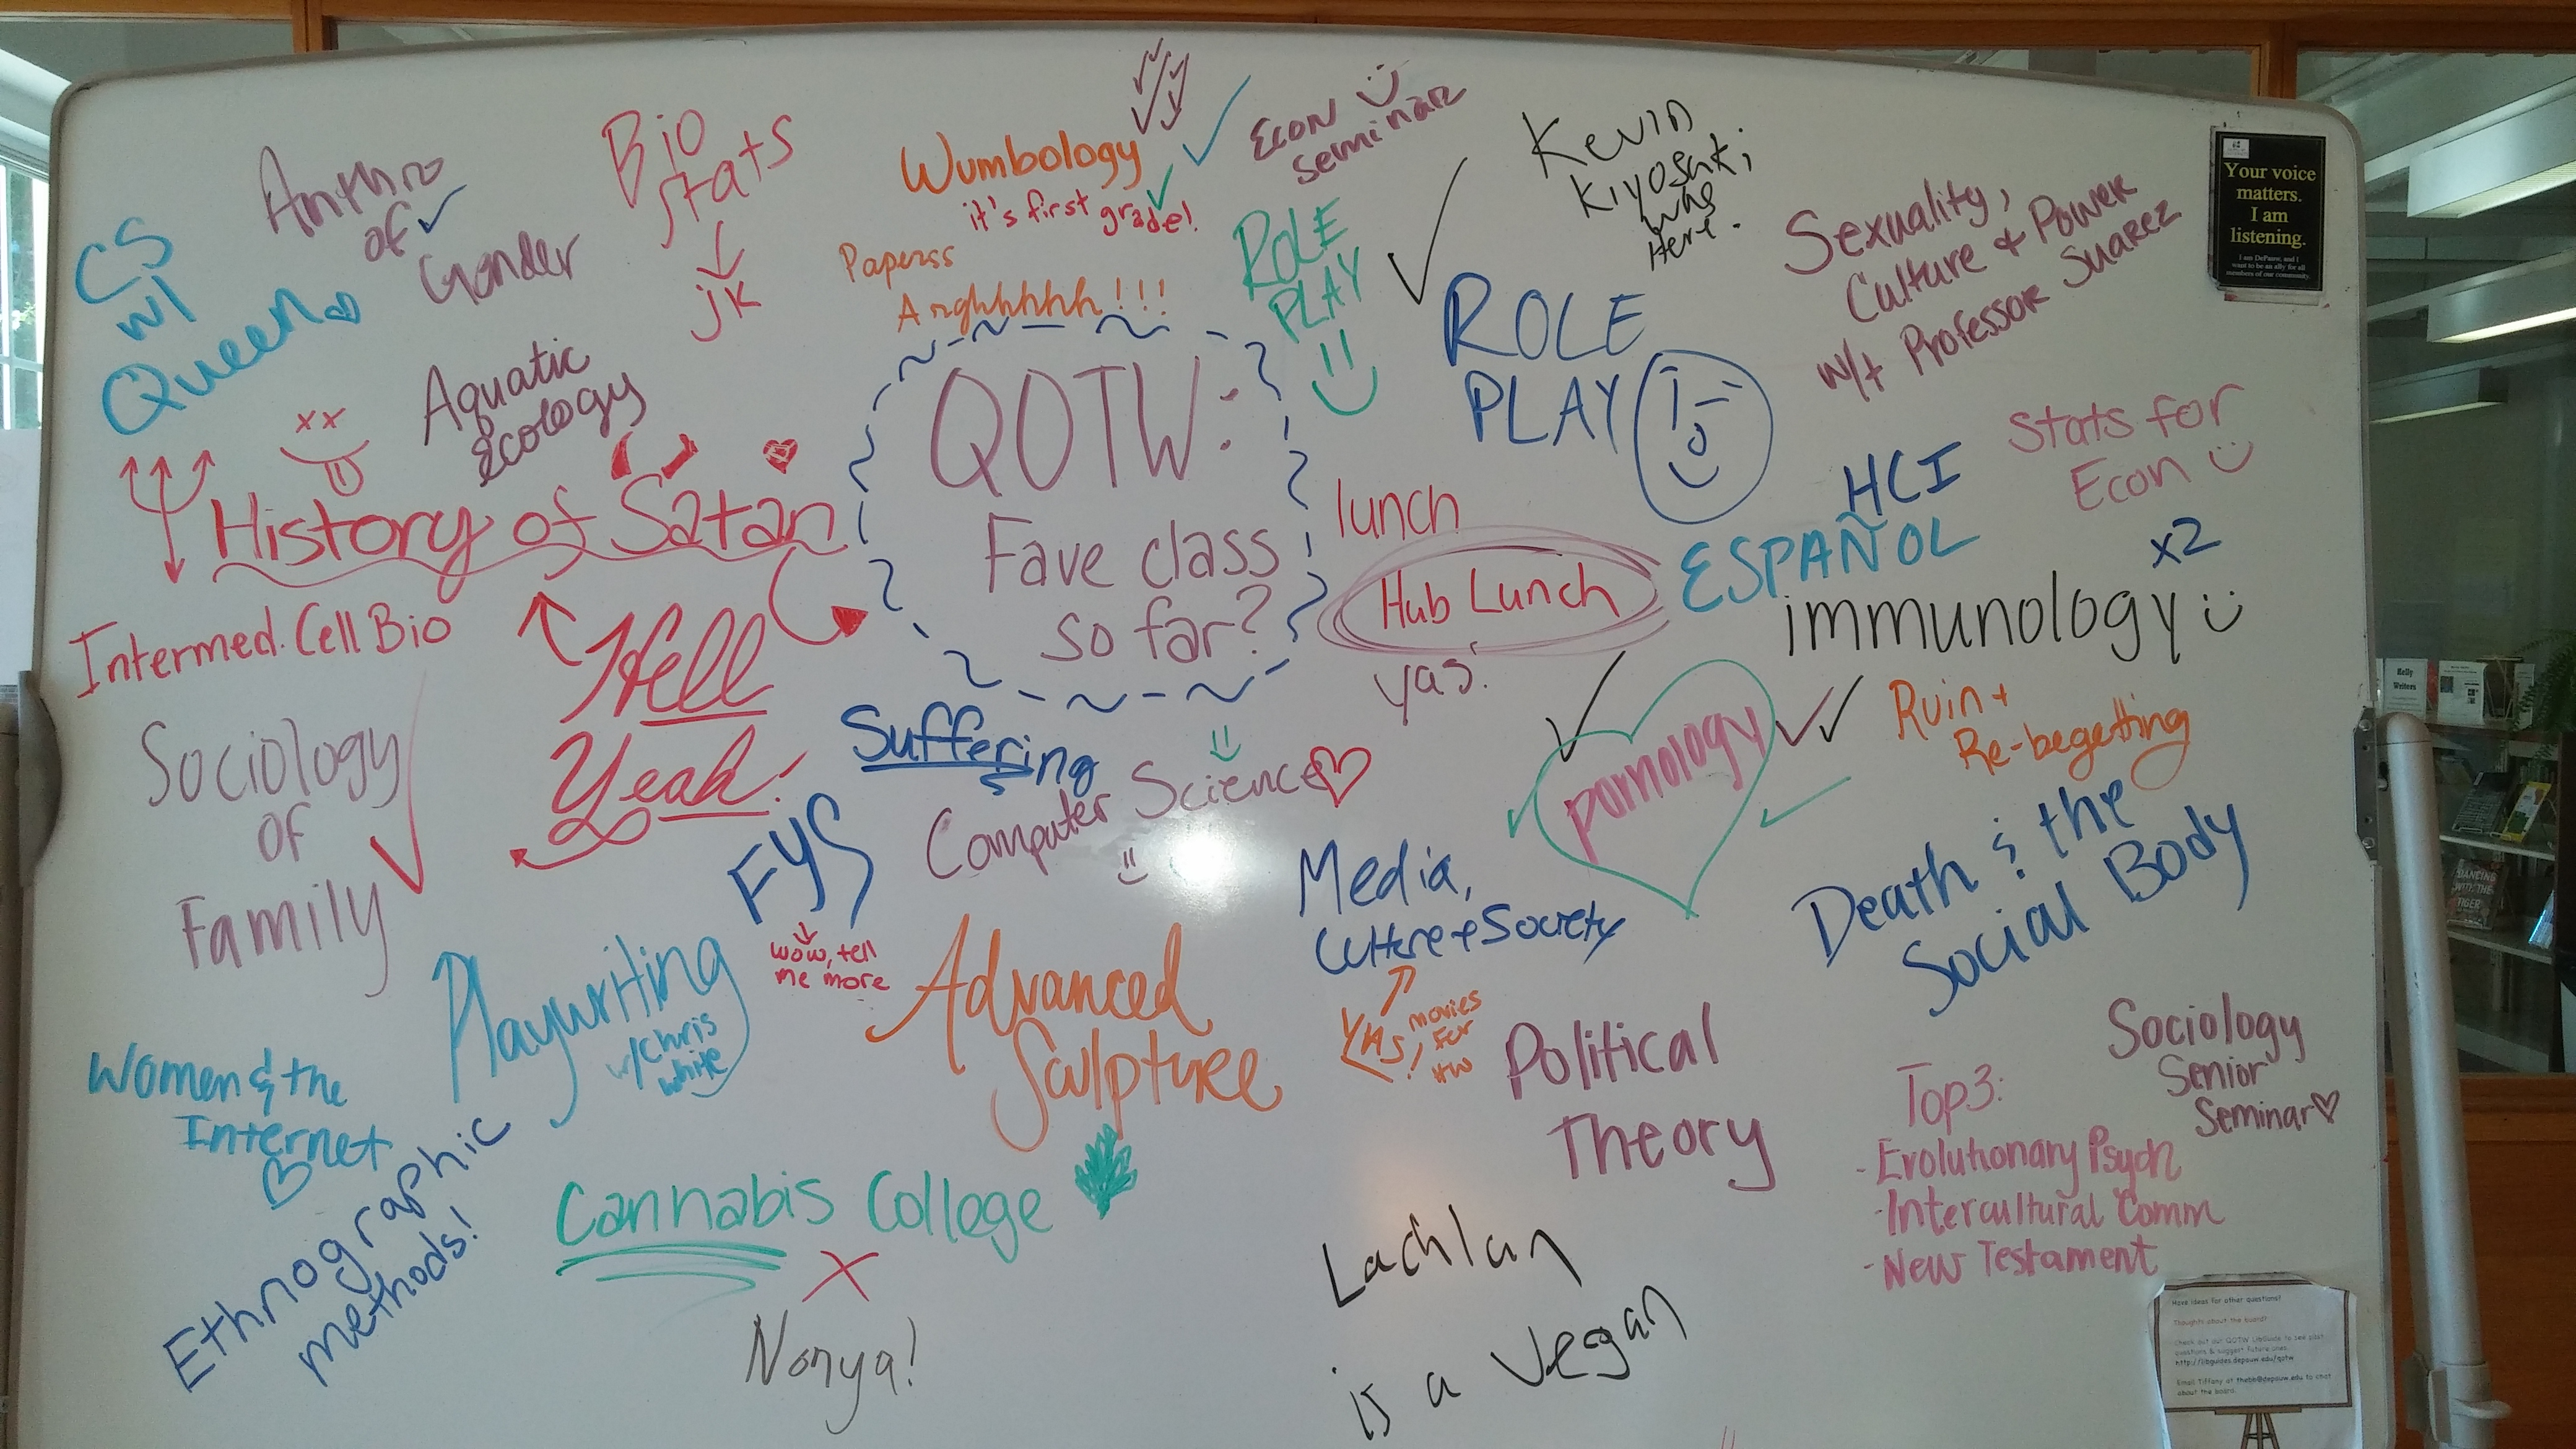 CS
w/
Queen
Anthro
of
Gender
Bio
Stats
jk
Wumbology
it's first grade!
Paperss
Arghhhhh!!!
Econ
Seminar
ROLE
PLAY
Kevin
Kiyosaki
was
Here.
ROLE
PLAY
Sexuality,
Culture + Power
w/t Professor Suarez
Your voice
matters.
I am
listening.
I am DePauw, and I
want to be an ally for all
members of our community.
Aquatic
Ecology
xx
History of Satan
QOTW:
Fave class
so far?
lunch
Hub Lunch
yas!
HCI
Stats for
Econ
ESPAÑOL
x2
immunology
Intermed. Cell Bio
Hell
Yeah!
Sociology
of
Family
Suffering
Computer Science
pornology
Ruin +
Re-begetting
FYS
wow, tell
me more
Media,
Culture + Society
YAS!
movies
for
HW
Death & the
Social Body
Playwriting
w/ Chris
White
Advanced
Sculpture
Women & the
Internet
Ethnographic
methods!
Cannabis College
Nonya!
Political
Theory
Lachlan
is a vegan
Sociology
Senior
Seminar
Top 3:
- Evolutionary Psych
- Intercultural Comm
- New Testament
Have ideas for other questions?
Thoughts about the board?
Check out our QOTW LibGuide to see past
questions & suggest future ones.
http://libguides.depauw.edu/qotw
Email Tiffany at thebb@depauw.edu to chat
about the board.
Kelly
Writers
DANCING
WITH THE
TIGER